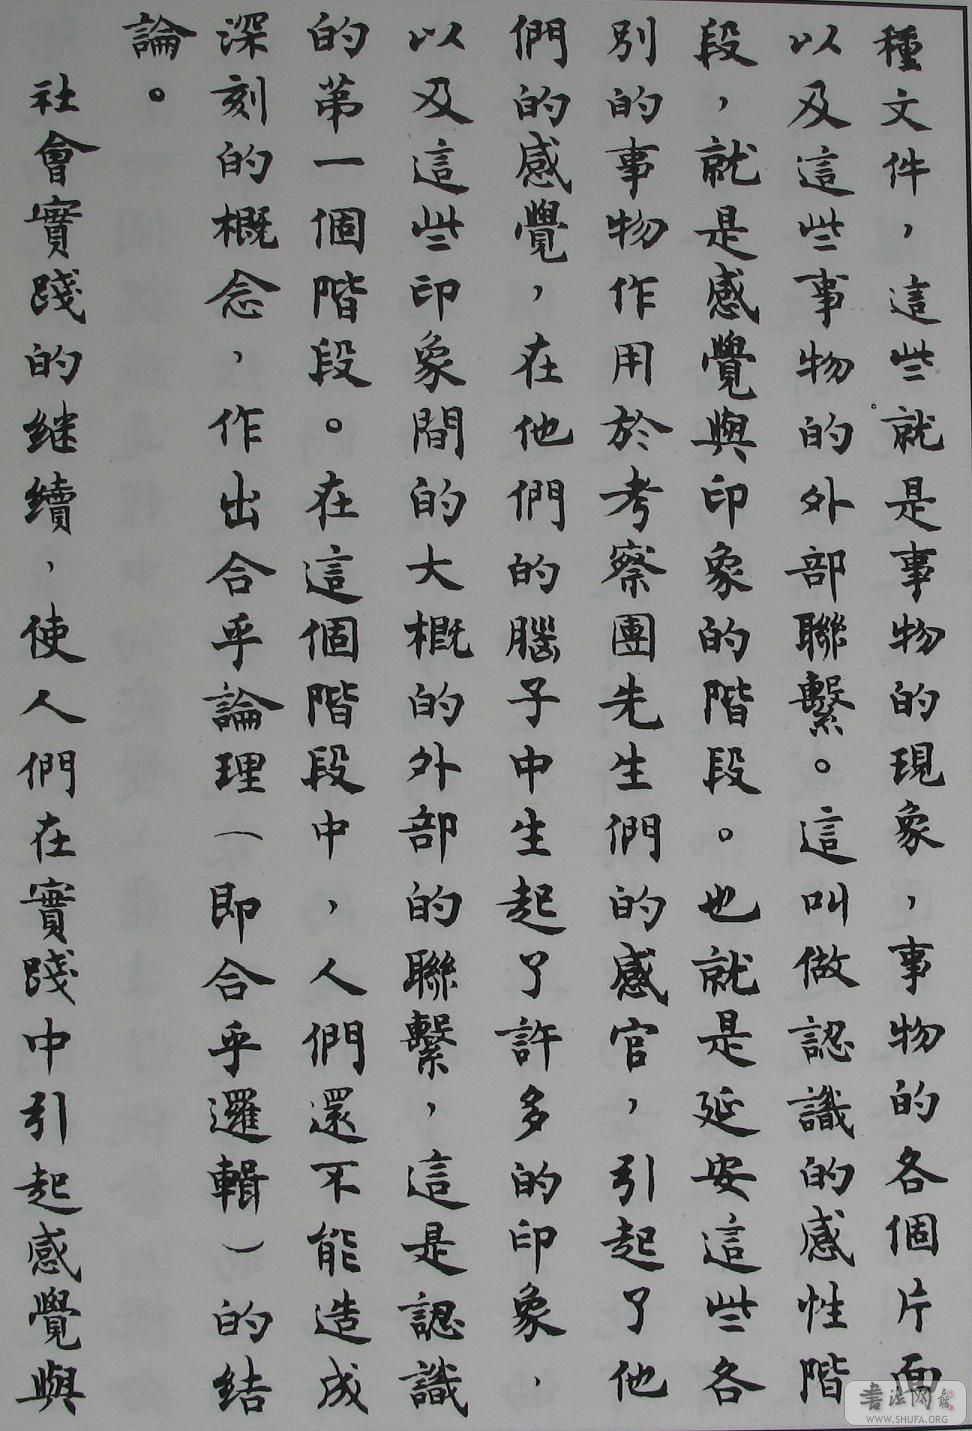 種文件，這些就是事物的現象，事物的各個片面
以及這些事物的外部聯繫。這叫做認識的感性階
段，就是感覺與印象的階段。也就是延安這些各
別的事物作用於考察團先生們的感官，引起了他
們的感覺，在他們的腦子中生起了許多的印象，
以及這些印象間的大概的外部的聯繫，這是認識
的第一個階段。在這個階段中，人們還不能造成
深刻的概念，作出合乎論理（即合乎邏輯）的结
論。
社會實踐的继續，使人們在實踐中引起感覺與
书法网
WWW.SHUFA.ORG